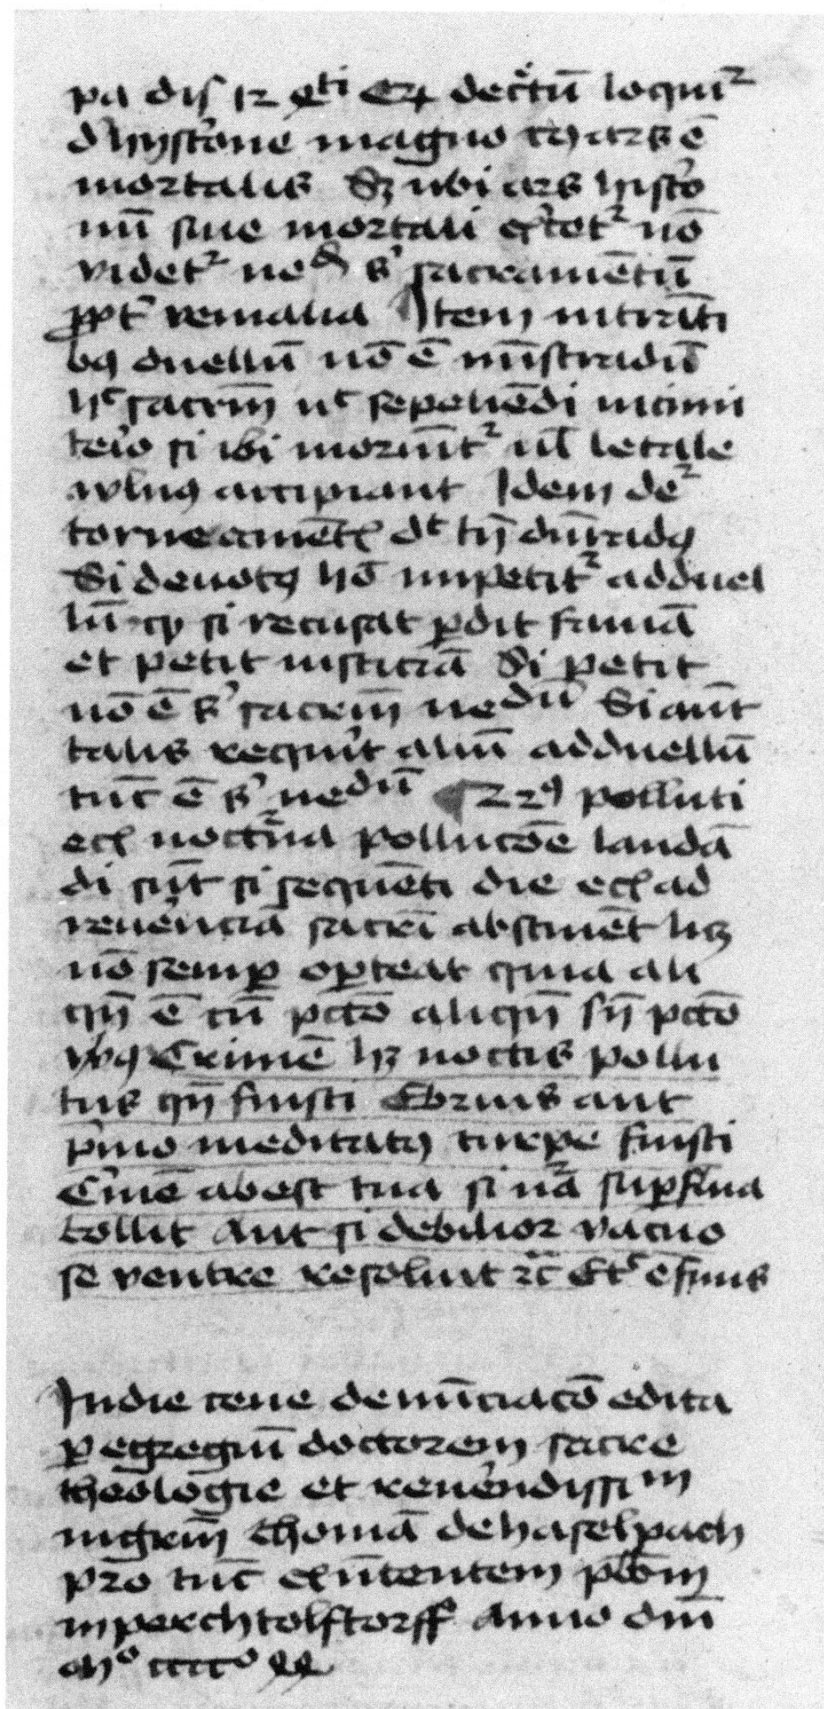 pa dis 12 decr̄tū loquiᷣ
d hystrione magno cuȝ ars ē
mortalis Sȝ ubi ars histrio
nū sine mortali nō
videtᷣ negͣ sacramētū
venialia Item intrāti
bꝰ duellū nō ē mīstradū
hͦ sacrm̄ nͨ sepeliēdi in cimi
teio si ibi moriūtᷣ ul̄ letale
vulnꝰ accipiant Idem deᷣ
torneamētꝭ
Si devotꝰ hō impetitᷣ ad duel
lū si recusat ꝑdit famā
et petit iusticiā Si petit
nō ē sacrm̄ negandū Si aūt
talis requirit aliū ad duellū
tūc ē negandū polluti
ex nocturna pollucōe laudā
di sūt si sequēti die ex ad
reuēnciā sacrī abstinēt lȝ
nō semꝑ oporteat quia ali
qn̄ ē cū pctō aliqn̄ sn̄ pctō
Crimē hȝ noctis pollu
tus qn̄ fuisti Ebrius aut
prius meditatꝰ turpe fuisti
Crimē abest tua si nrā suꝑflua
tollit Aut si debilior vacuo
se ventre resoluit ⁊c̄ Et ē finis
In die cene denūciacō edita
ꝑ egregiū doctorem sacre
theologie et reuēndissim
mgrm̄ thomā de haselpach
pro tūc existentem plbm̄
in perchtolstorff Anno dm̄
Mͦ ccccͦ xx